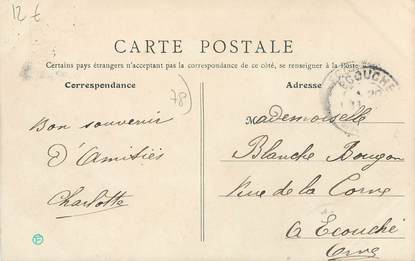 12 €
CARTE POSTALE
Certains pays étrangers n'acceptant pas la correspondance de ce côté, se renseigner à la Poste
Correspondance
78)
Adresse
ECOUCHÉ
Bon souvenir
d'Amitiés
Charlotte
Mademoiselle
Blanche Bougon
Rue de la Corne
à Ecouché
Orne